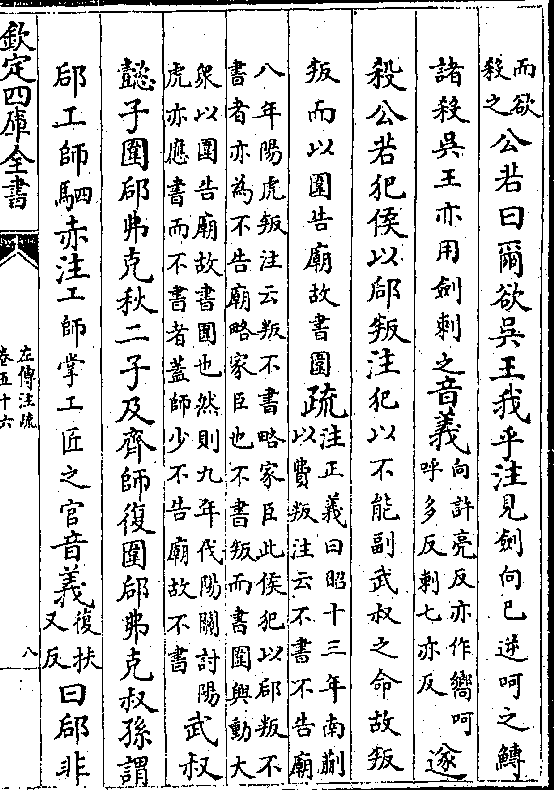 而欲
殺之
公若曰爾欲吳王我乎注見劍向已逆呵之鱄
諸殺吳王亦用劍刺之音義
向許亮反亦作嚮呵
呼多反刺七亦反
遂
殺公若犯侯以郈叛注犯以不能副武叔之命故叛
叛而以圍告廟故書圍疏
注正義曰昭十三年南蒯
以費叛注云不書不告廟
八年陽虎叛注云叛不書略家臣此侯犯以郈叛不
書者亦為不告廟略家臣也不書叛而書圍興動大
衆以圍告廟故書圍也然則九年伐陽關討陽
虎亦應書而不書者蓋師少不告廟故不書
武叔
懿子圍郈弗克秋二子及齊師復圍郈弗克叔孫謂
郈工師駟赤注工師掌工匠之官音義
復扶
又反
曰郈非
欽定四庫全書
左傳注疏
卷五十六
八